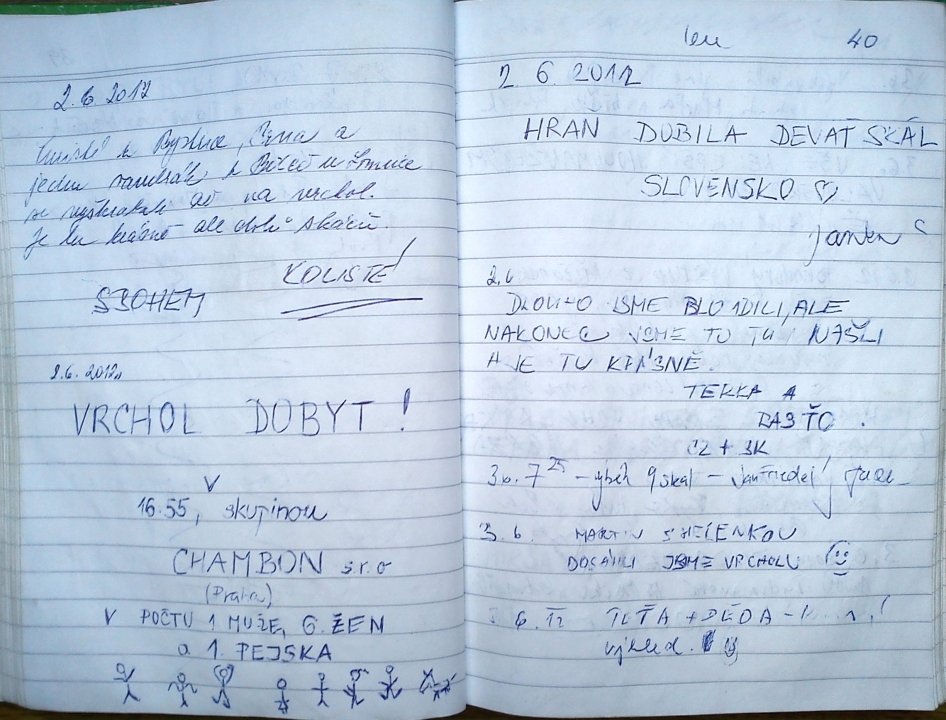 2.6.2012
Turisté z Bystrce, Brna a
jeden z
se vyškrabali až na vrchol.
Je tu krásně ale
SBOHEM
KOLISTE!
2.6.2012
VRCHOL DOBYT!
V
16.55, skupinou
CHAMBON s.r.o
(Praha)
V POČTU 1 MUŽE, 6. ŽEN
a 1. PEJSKA
40
2 6 2012
HRAN DOBILA DEVAŤ SKÁL
SLOVENSKO ♡
2.6
DLOUHO JSME BLOUDILI, ALE
NAKONEC JSME TO TU NAŠLI
A JE TU KRÁSNĚ.
TERKA A
RASŤO.
CZ + SK
3.6. 7 25 - výběh 9 skal -
3.6. MARTIN S HELENKOU
DOSÁHLI JSME VRCHOLU ☺
6.12 TETA + DĚDA -
výhled.